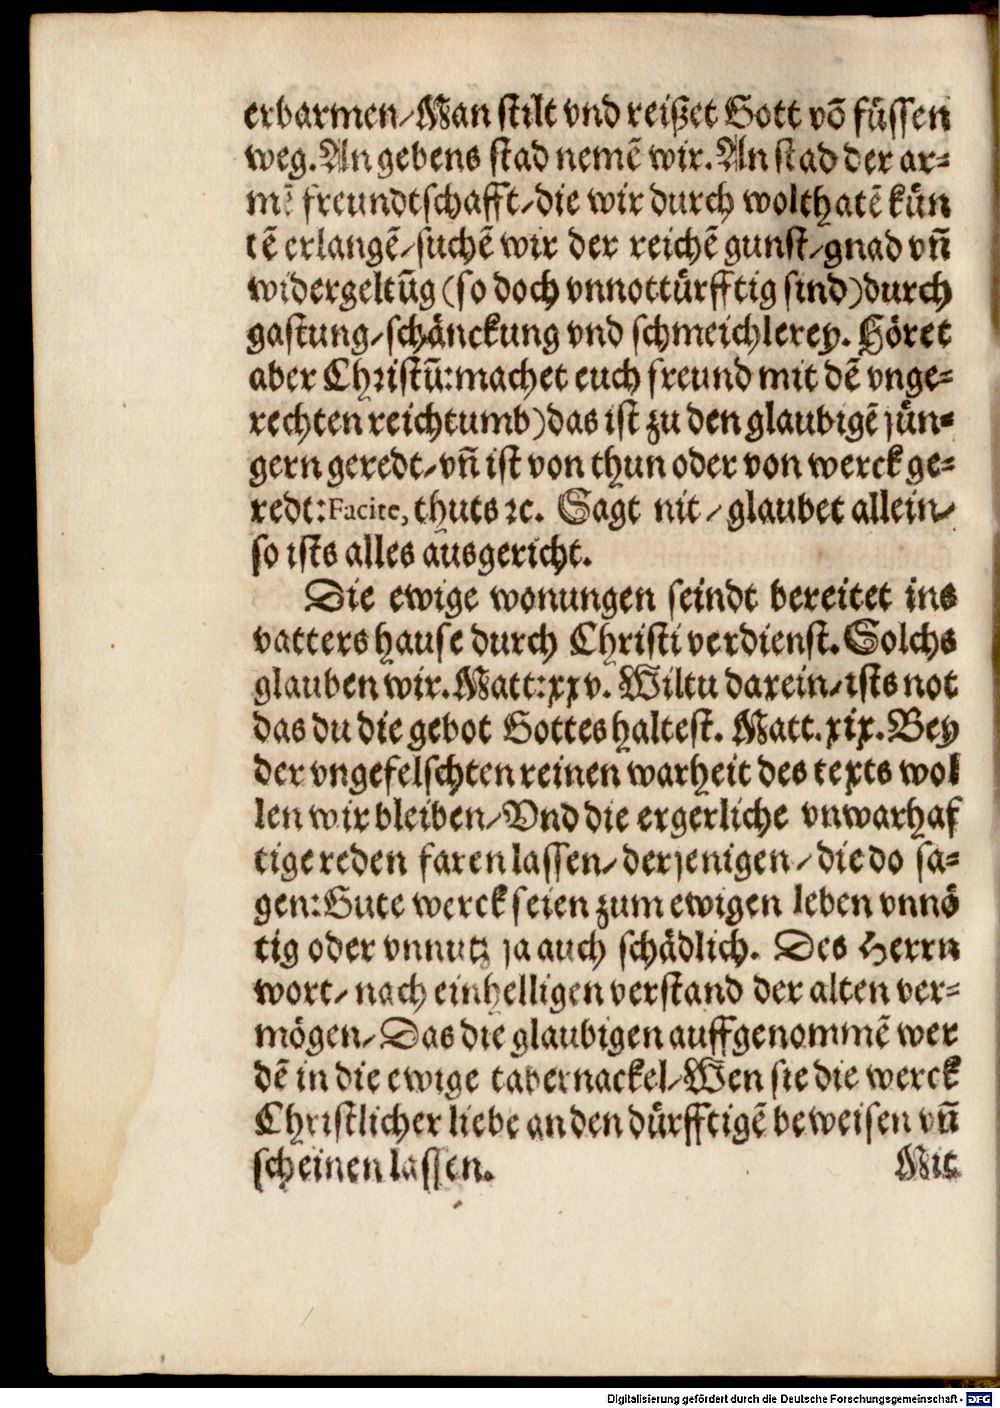 erbarmen/Man stilt vnd reißet Gott võ füssen
weg. An gebens stad nemẽ wir. An stad der ar-
mẽ freundtschafft/die wir durch wolthatẽ kün
tẽ erlangẽ/suchẽ wir der reichẽ gunst/gnad vñ
widergeltũg (so doch vnnottürfftig sind) durch
gastung/schänckung vnd schmeichlerey. Höret
aber Christũ: machet euch freund mit dẽ vnge-
rechten reichtumb) das ist zu den glaubigẽ jün-
gern geredt/vñ ist von thun oder von werck ge-
redt: Facite, thuts ꝛc. Sagt nit/glaubet allein/
so ists alles ausgericht.
Die ewige wonungen seindt bereitet ins
vatters hause durch Christi verdienst. Solchs
glauben wir. Matt: xxv. Wiltu darein/ists not
das du die gebot Gottes haltest. Matt. xix. Bey
der vngefelschten reinen warheit des texts wol
len wir bleiben/Vnd die ergerliche vnwarhaf
tige reden faren lassen/derjenigen/die do sa-
gen: Gute werck seien zum ewigen leben vnnö
tig oder vnnutz ja auch schädlich. Des Herrn
wort/nach einhelligen verstand der alten ver-
mögen/Das die glaubigen auffgenommẽ wer
dẽ in die ewige tabernackel/Wen sie die werck
Christlicher liebe an den dürfftigẽ beweisen vñ
scheinen lassen.
Mit
Digitalisierung gefördert durch die Deutsche Forschungsgemeinschaft - DFG